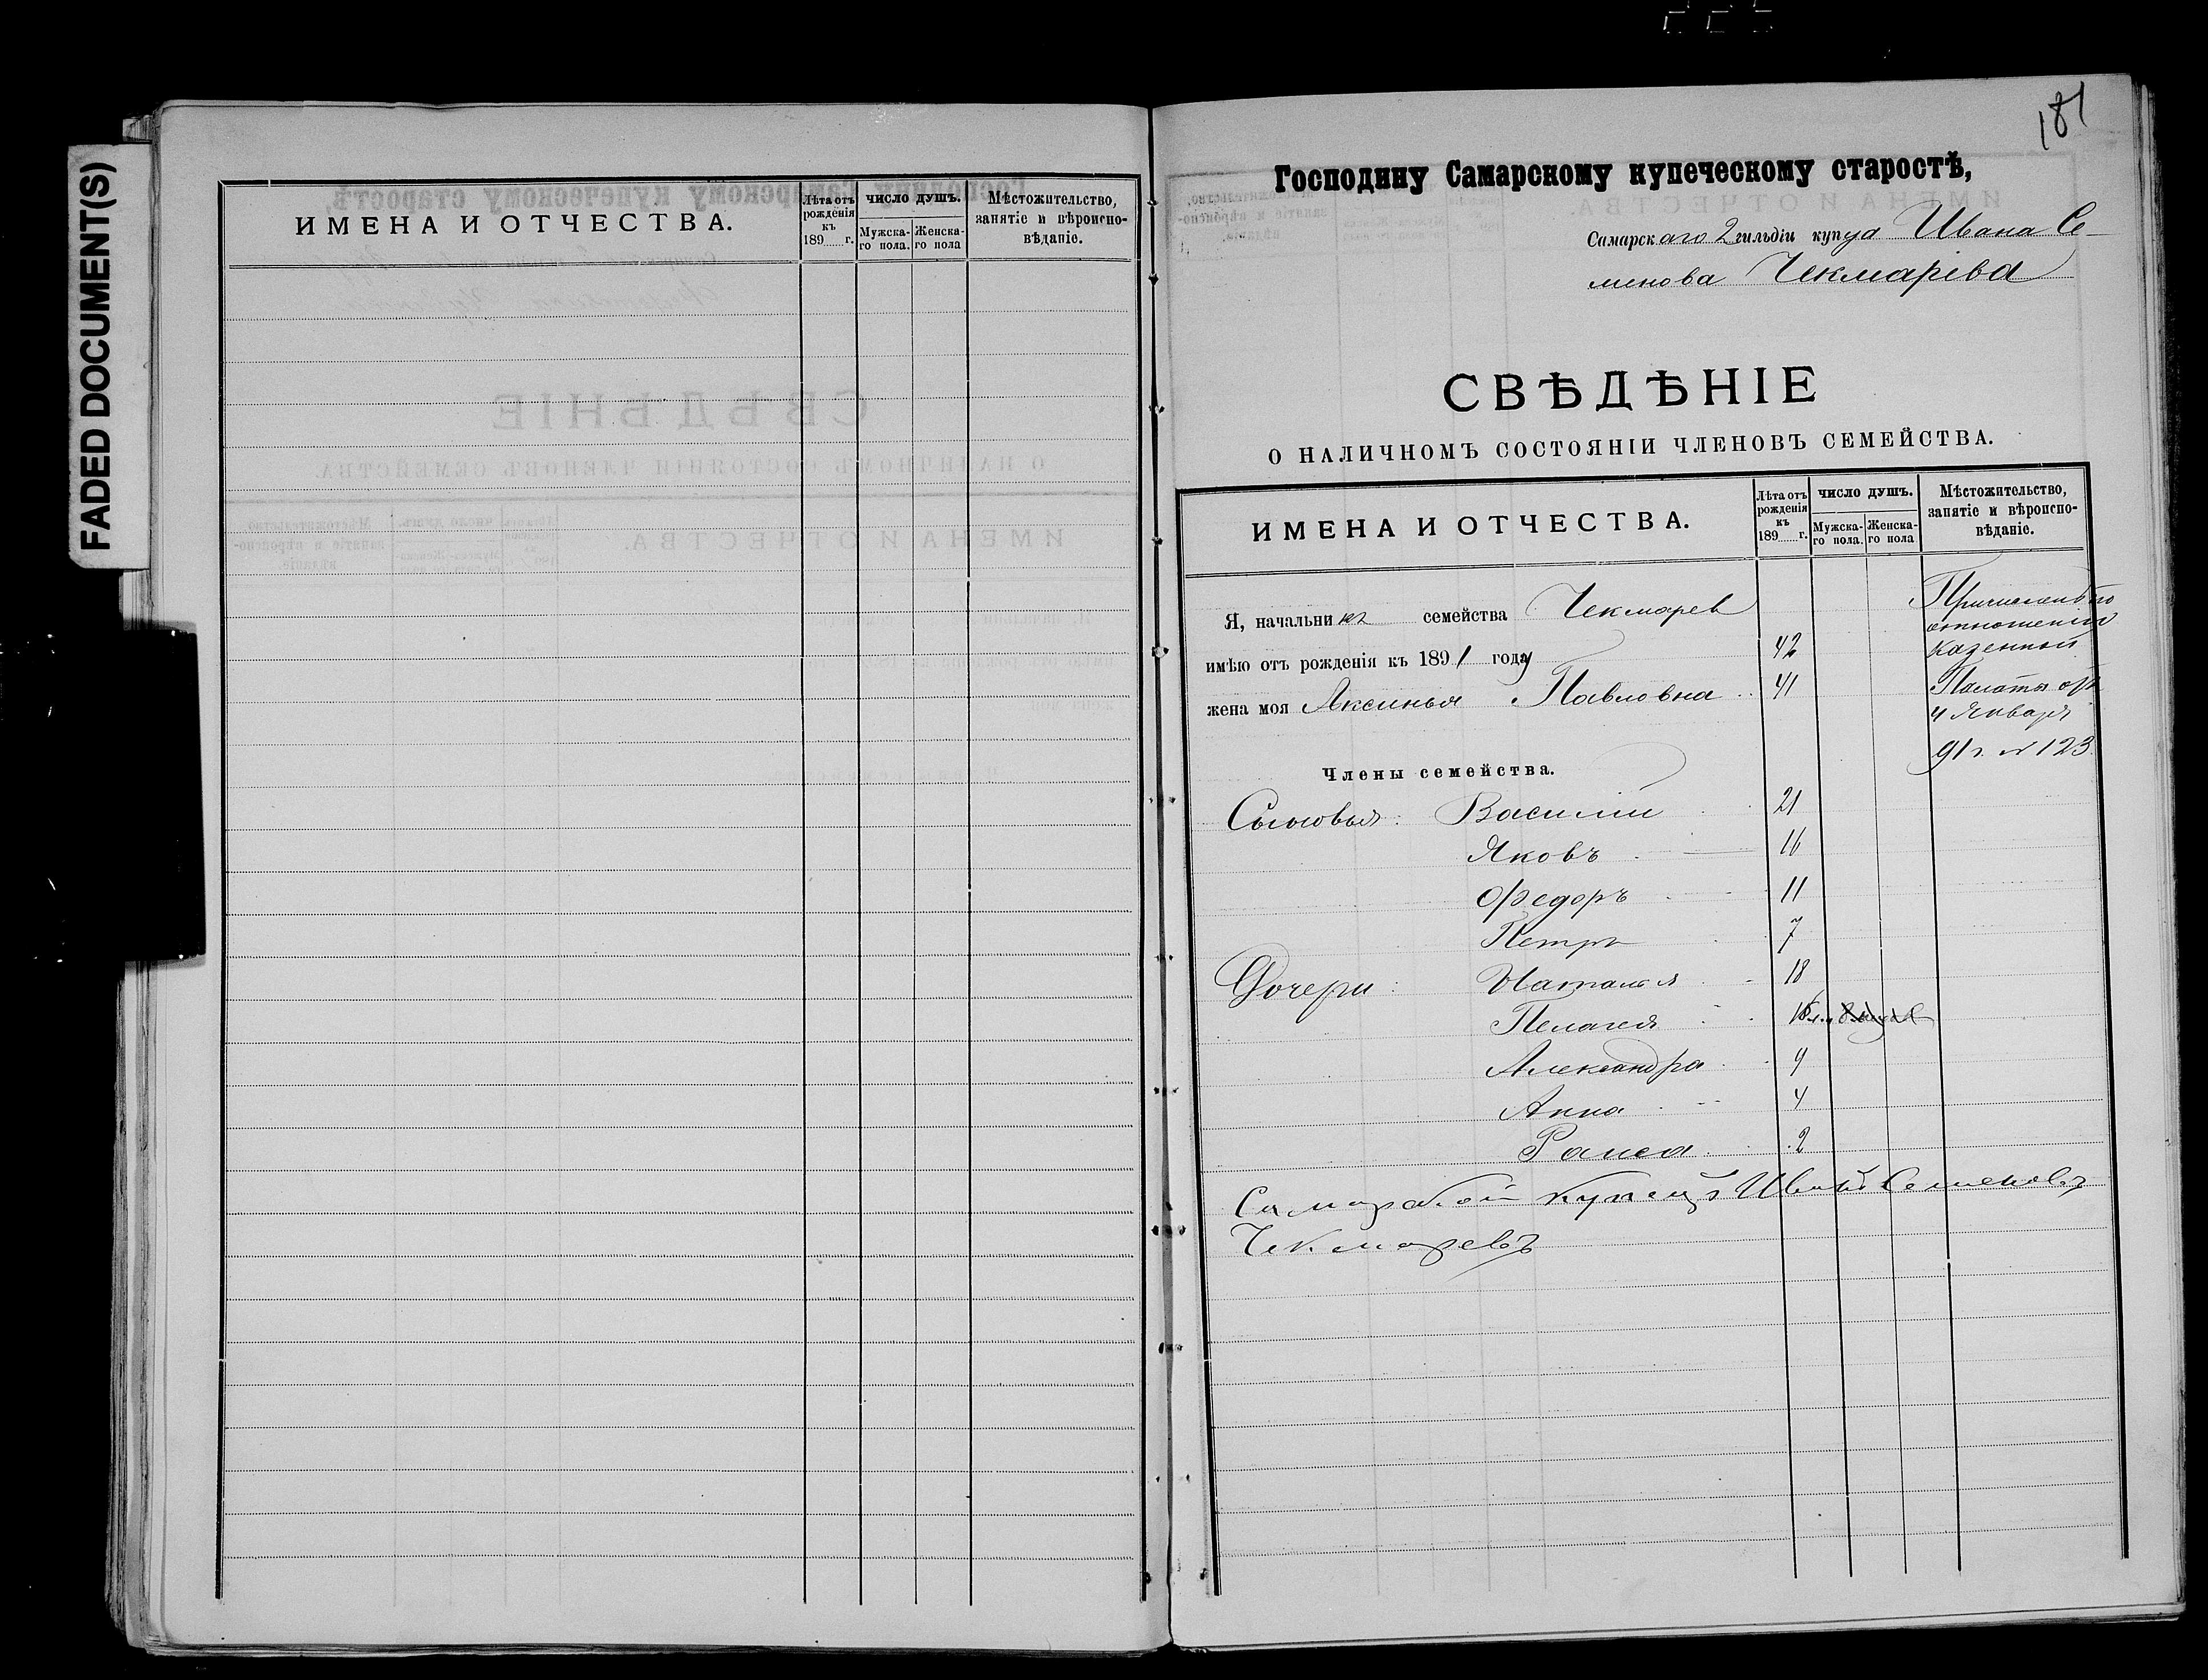 FADED DOCUMENT(S)
ИМЕНА И ОТЧЕСТВА.
Лѣта отъ рожденія къ 189 г.
ЧИСЛО ДУШЪ.
Мужска-го пола.
Женска-го пола
Мѣстожительство, занятіе и вѣроиспо-вѣданіе.
181
Господину Самарскому купеческому старостѣ,
Самарскаго 2 гильдіи купца Ивана Се-
менова Чекмарева
СВѢДѢНІЕ
О НАЛИЧНОМЪ СОСТОЯНІИ ЧЛЕНОВЪ СЕМЕЙСТВА.
ИМЕНА И ОТЧЕСТВА.
Лѣта отъ рожденія къ 189 г.
ЧИСЛО ДУШЪ.
Мужска-го пола.
Женска-го пола
Мѣстожительство, занятіе и вѣроиспо-вѣданіе.
Я, начальникъ семейства Чекмарев
имѣю отъ рожденія къ 1891 году 42
жена моя Аксинья Павловна 41
Причисленъ по
отношенію
Казенной
Палаты отъ
4 Января
91 г. № 123.
Члены семейства.
Сыновья: Василій 21
Яковъ 16
Федоръ 11
Петръ 7
Дочери: Наталія 18
Пелагея
Александра 9
Анна 4
Раиса 2
Самарской купецъ Иванъ Семеновъ
Чекмаревъ